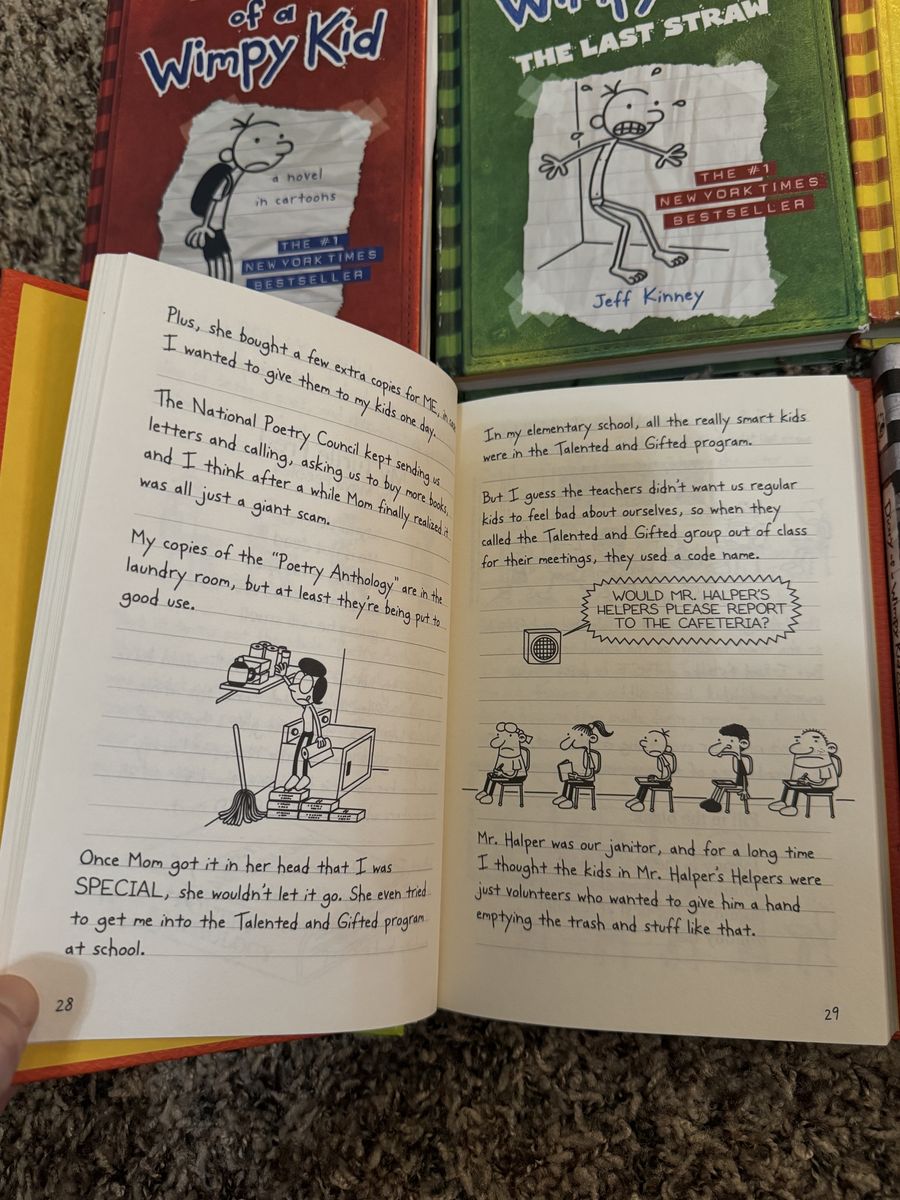 of a
Wimpy Kid
a novel
in cartoons
THE #1
NEW YORK TIMES
BESTSELLER
Wimpy
THE LAST STRAW
THE #1
NEW YORK TIMES
BESTSELLER
Jeff Kinney
Plus, she bought a few extra copies for ME, in
I wanted to give them to my kids one day.
The National Poetry Council kept sending us
letters and calling, asking us to buy more books,
and I think after a while Mom finally realized it
was all just a giant scam.
My copies of the "Poetry Anthology" are in the
laundry room, but at least they're being put to
good use.
Once Mom got it in her head that I was
SPECIAL, she wouldn't let it go. She even tried
to get me into the Talented and Gifted program
at school.
28
In my elementary school, all the really smart kids
were in the Talented and Gifted program.
But I guess the teachers didn't want us regular
kids to feel bad about ourselves, so when they
called the Talented and Gifted group out of class
for their meetings, they used a code name.
WOULD MR. HALPER'S
HELPERS PLEASE REPORT
TO THE CAFETERIA?
Mr. Halper was our janitor, and for a long time
I thought the kids in Mr. Halper's Helpers were
just volunteers who wanted to give him a hand
emptying the trash and stuff like that.
29